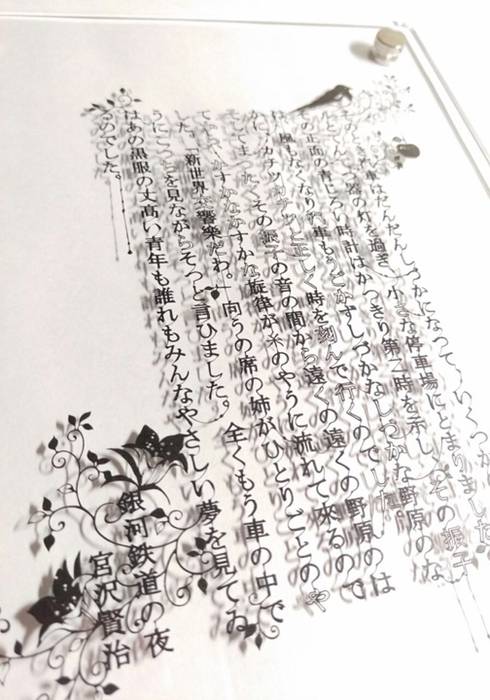 汽車はだんだんしづかになって、いくつか
てつ器の灯を過ぎ、小さな停車場にとまりました。
その正面の青じろい時計はかっきり第二時を示し、その振子
は風もなくなり汽車もうごかずしづかなしづかな野原のな
かにカチッカチッと正しく時を刻んで行くのでした。
そしてまったくその振子の音の間から遠くの遠くの野原のは
てから、かすかなかすかな旋律が糸のやうに流れて来るので
した。「新世界交響楽だわ。」向うの席の姉がひとりごとのや
うにこっちを見ながらそっと言ひました。全くもう車の中で
はあの黒服の丈高い青年も誰れもみんなやさしい夢を見てゐ
るのでした。
銀河鉄道の夜
宮沢賢治